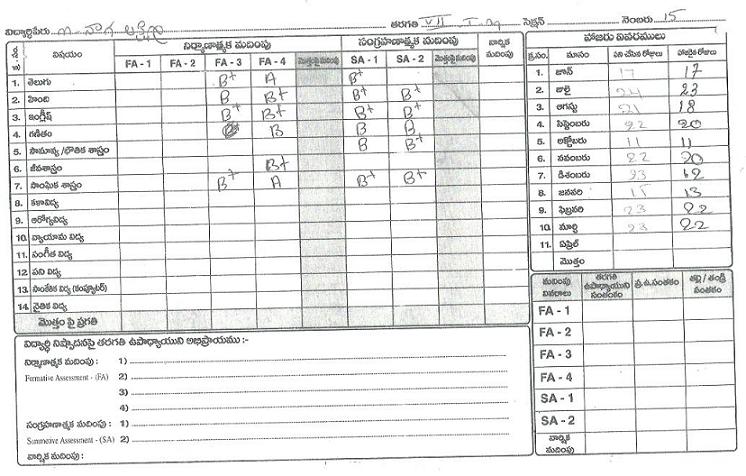 విద్యార్థిపేరు: నాగ లక్ష్మి తరగతి VII సెక్షన్ నెంబరు 15
విషయం నిర్మాణాత్మక మదింపు సంగ్రహణాత్మక మదింపు వార్షిక మదింపు
FA - 1 FA - 2 FA - 3 FA - 4 మొత్తంపై మదింపు SA - 1 SA - 2 మొత్తంపై మదింపు
1. తెలుగు B+ A B+
2. హింది B B+ B+ B+
3. ఇంగ్లీష్ B+ B+ B+ B+
4. గణితం B B B
5. సామాన్య / భౌతిక శాస్త్రం B B+
6. జీవశాస్త్రం B+
7. సాంఘిక శాస్త్రం B+ A B+ B+
8. కళావిద్య
9. ఆరోగ్యవిద్య
10. వ్యాయామ విద్య
11. సంగీత విద్య
12. పని విద్య
13. సాంకేతిక విద్య (కంప్యూటర్)
14. నైతిక విద్య
మొత్తం పై ప్రగతి
విద్యార్థి నిష్పాదనపై తరగతి ఉపాధ్యాయుని అభిప్రాయము :-
నిర్మాణాత్మక మదింపు : 1)
Formative Assessment - (FA) 2)
3)
4)
సంగ్రహణాత్మక మదింపు : 1)
Summative Assessment - (SA) 2)
వార్షిక మదింపు :
హాజరు వివరములు
క్ర.సం. మాసం పని చేసిన రోజులు హాజరైన రోజులు
1. జూన్ 17 17
2. జులై 24 23
3. ఆగష్టు 21 18
4. సెప్టెంబరు 22 20
5. అక్టోబరు 11 11
6. నవంబరు 22 20
7. డిశంబరు 23
8. జనవరి 15 13
9. ఫిబ్రవరి 23 22
10. మార్చి 23 22
11. ఏప్రిల్
మొత్తం
మదింపు వివరాలు తరగతి ఉపాధ్యాయుని సంతకం ప్ర.ఉ.సంతకం తల్లి / తండ్రి సంతకం
FA - 1
FA - 2
FA - 3
FA - 4
SA - 1
SA - 2
వార్షిక మదింపు